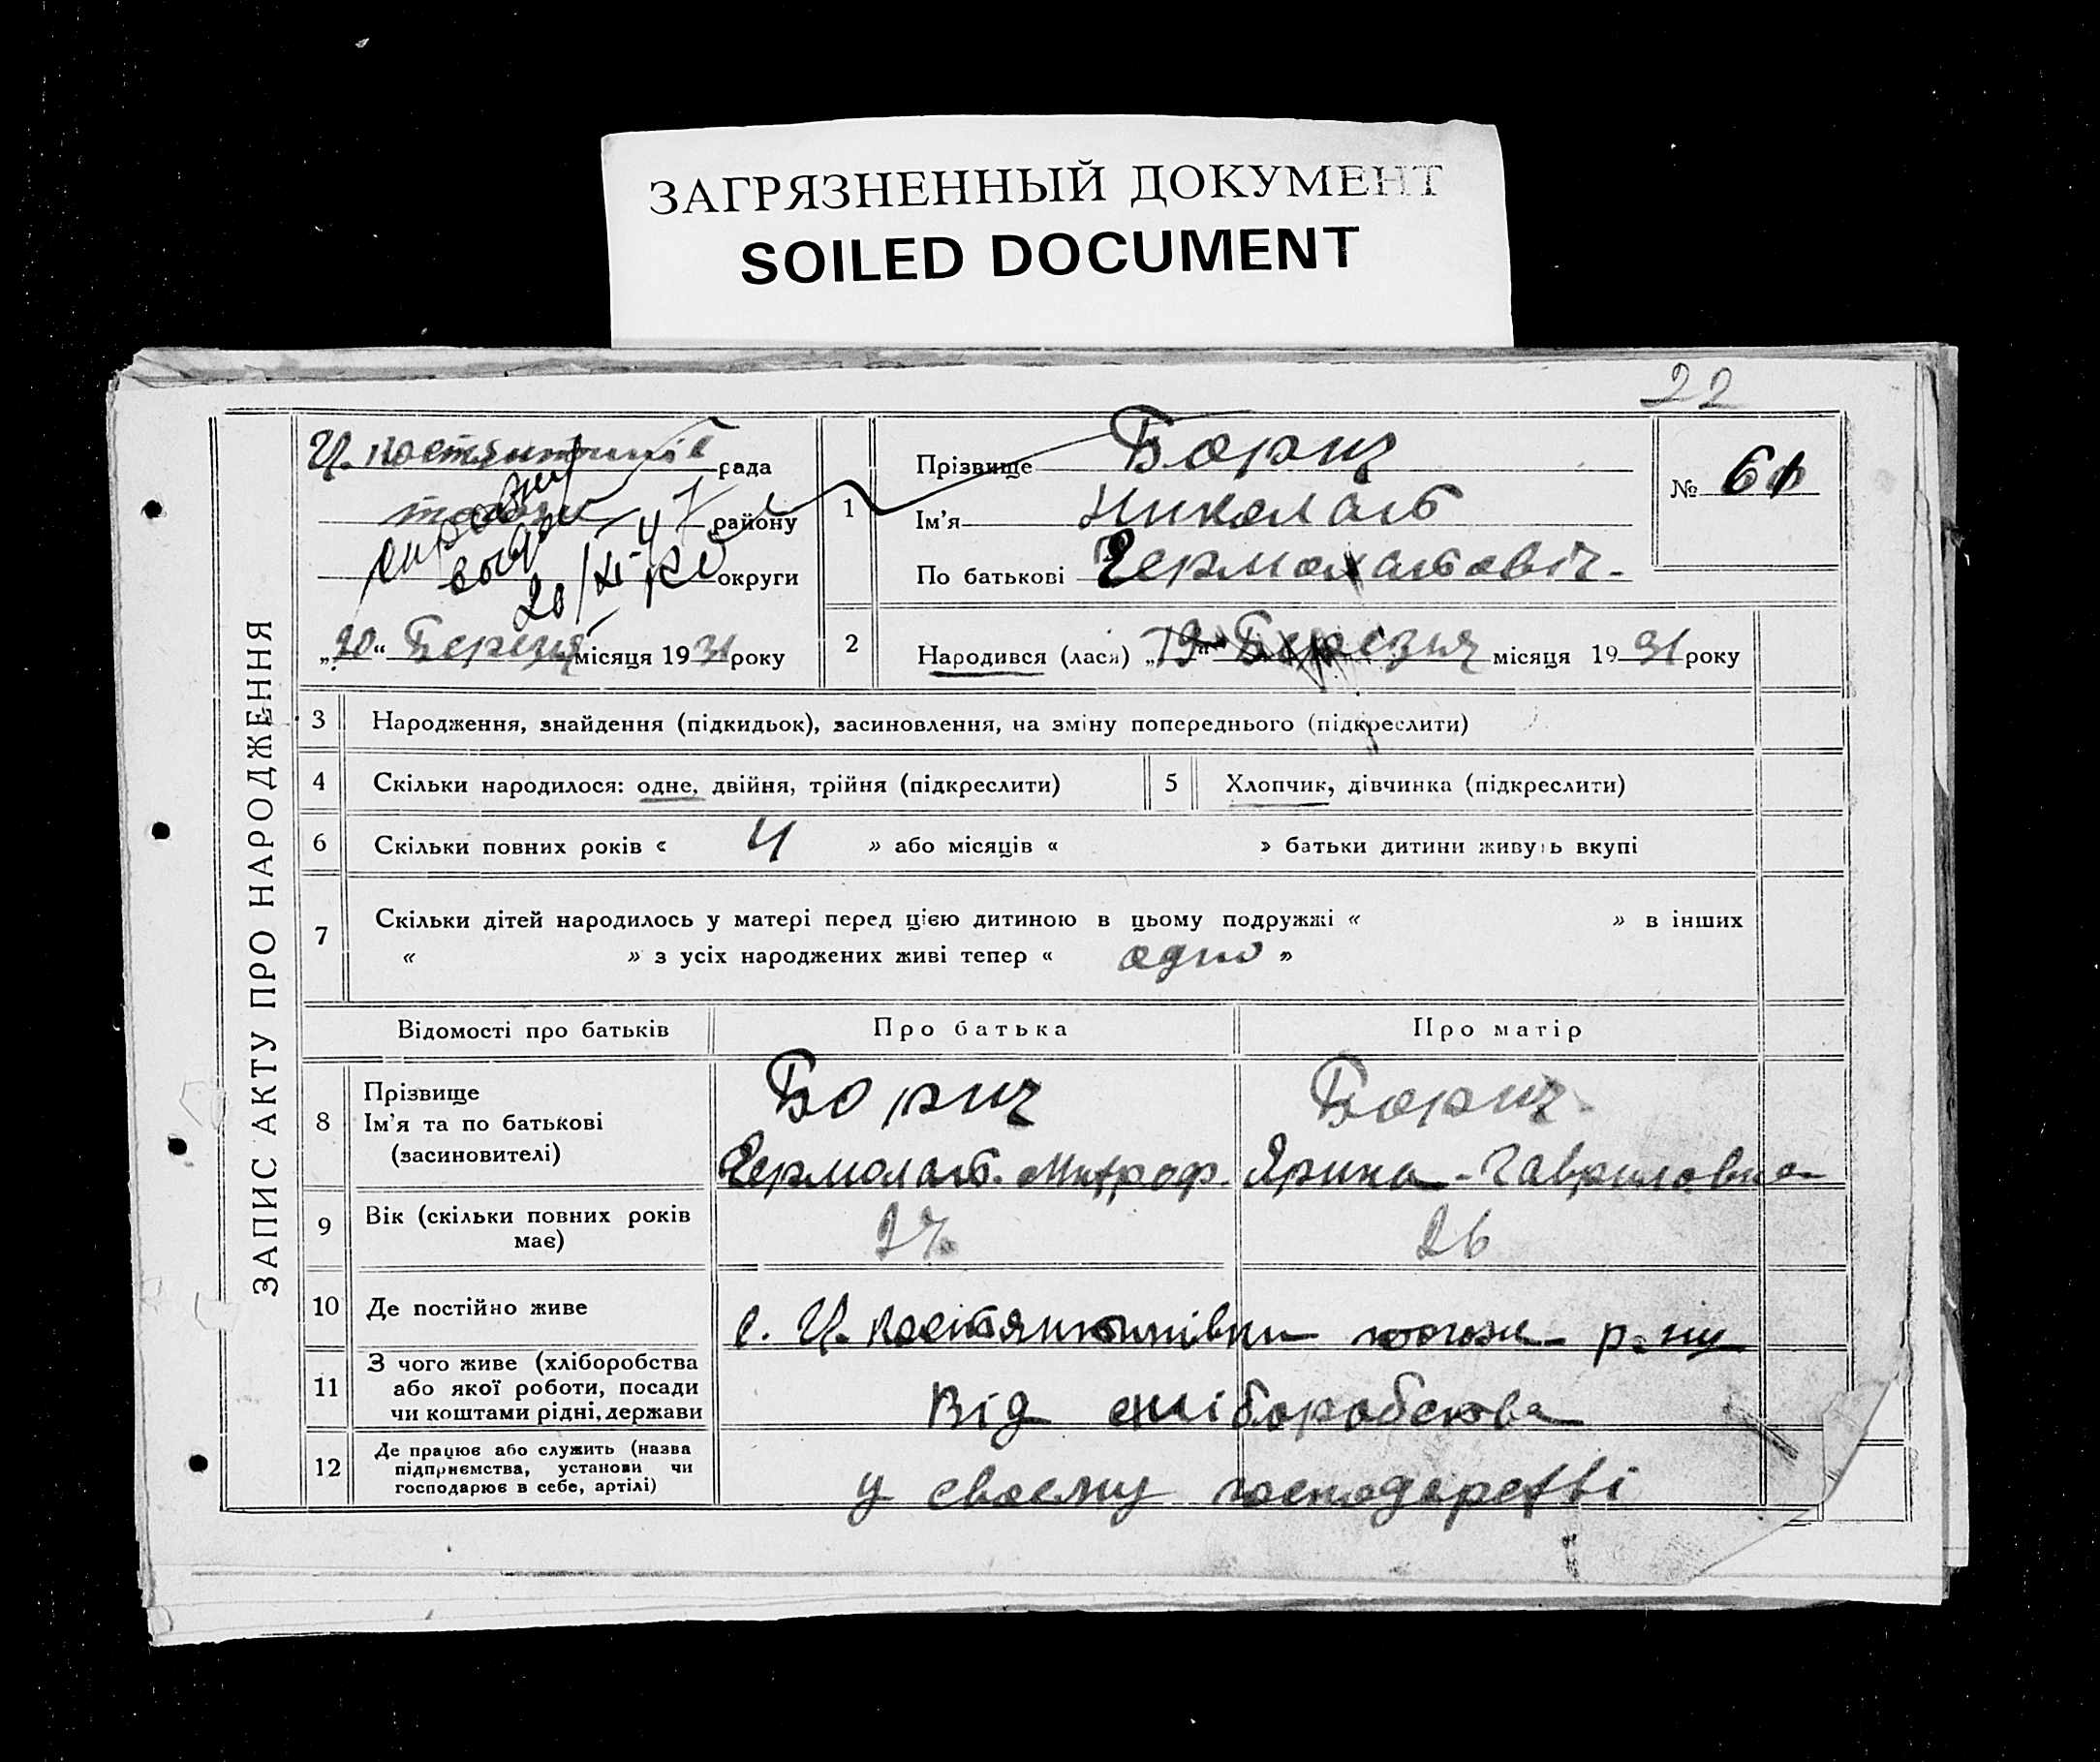 ЗАГРЯЗНЕННЫЙ ДОКУМЕНТ
SOILED DOCUMENT
22
ЗАПИС АКТУ ПРО НАРОДЖЕННЯ
рада
району
округи
„20“ місяця 1931 року
1
Прізвище Борщ
Ім'я Николай
По батькові
№ 61
2
Народився (лася) „19“ Березня місяця 1931 року
3 Народження, знайдення (підкидьок), засиновлення, на зміну попереднього (підкреслити)
4 Скільки народилося: одне, двійня, трійня (підкреслити)
5 Хлопчик, дівчинка (підкреслити)
6 Скільки повних років « 4 » або місяців « » батьки дитини живуть вкупі
7 Скільки дітей народилось у матері перед цією дитиною в цьому подружжі « » в інших
« » з усіх народжених живі тепер « одно »
Відомості про батьків Про батька Про матір
8 Прізвище
Ім'я та по батькові
(засиновителі)
Борщ
Митроф.
Борщ
Ярина Гавриловна
9 Вік (скільки повних років
має)
27 26
10 Де постійно живе
с. р-ну
11 З чого живе (хліборобства
або якої роботи, посади
чи коштами рідні, держави
Від хліборобства
12 Де працює або служить (назва
підприємства, установи чи
господарює в себе, артілі)
у своєму господарстві